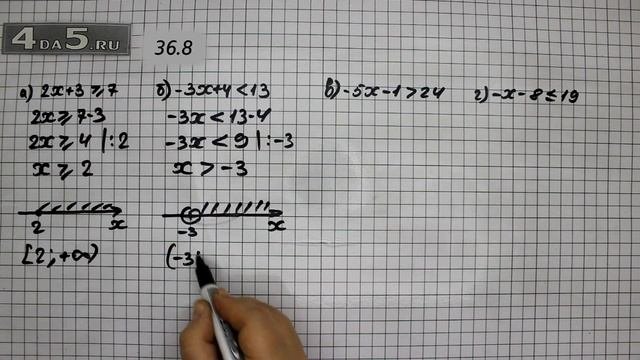 4DA5.RU
36.8
а) 2x+3≥7
2x≥7-3
2x≥4 |:2
x≥2
2 x
[2;+∞)
б) -3x+4<13
-3x<13-4
-3x<9 |:-3
x>-3
-3 x
(-3
в) -5x-1>24
г) -x-8≤19